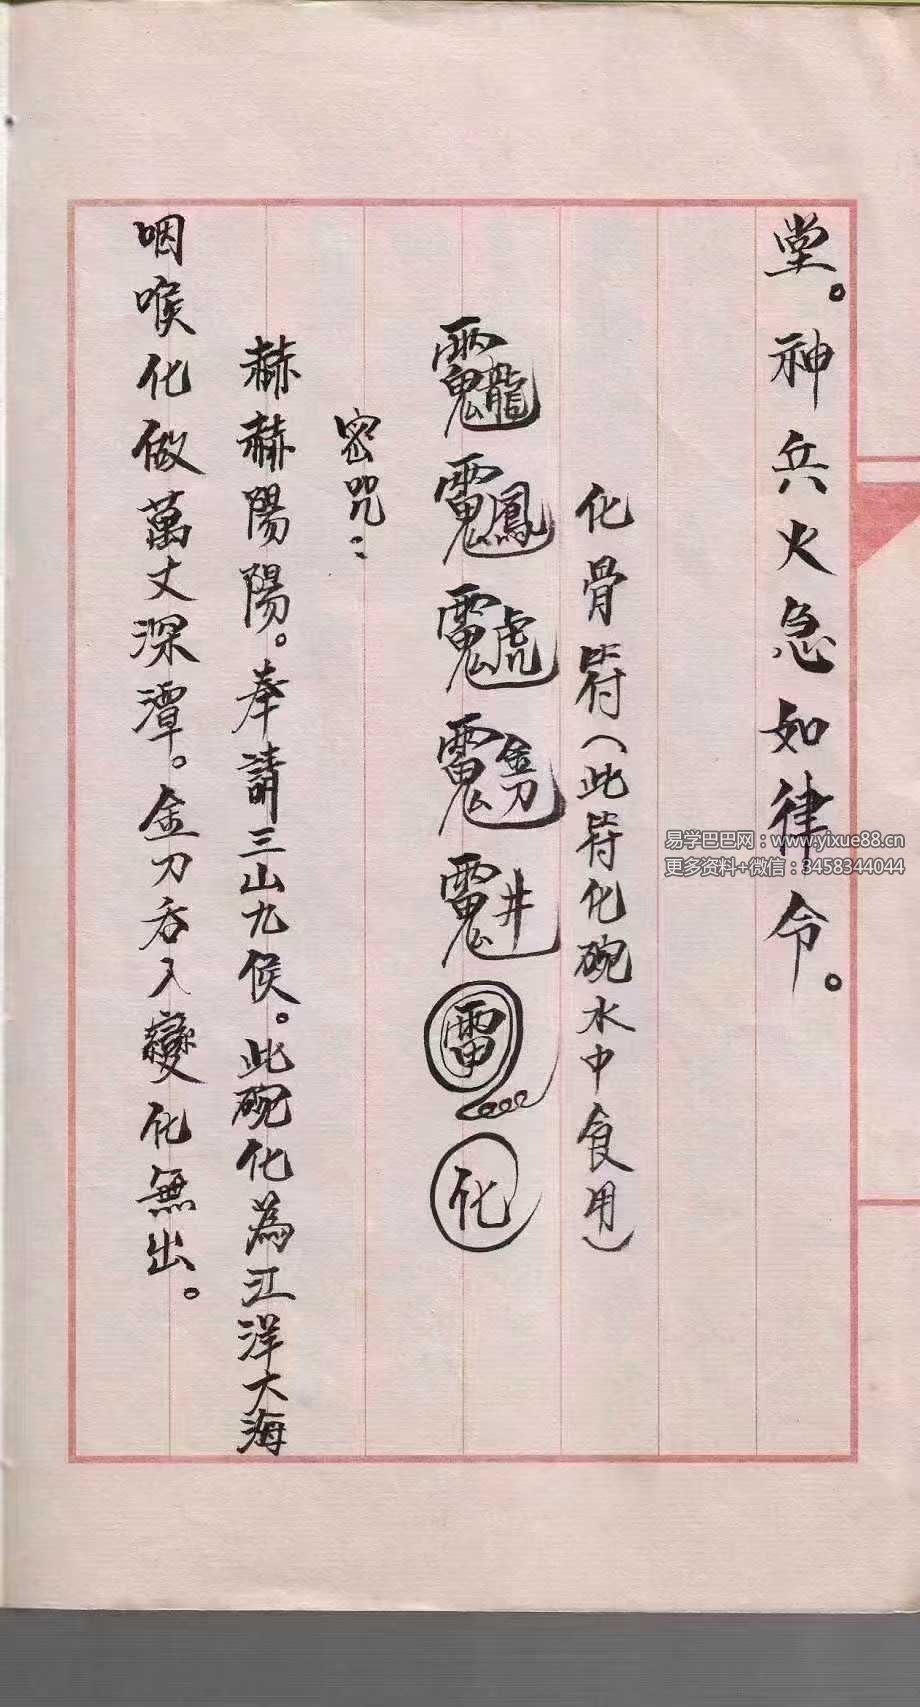 堂。神兵火急如律令。
化骨符(此符化碗水中食用)
雷
化
密咒:
赫赫陽陽。奉請三山九侯。此碗化為江洋大海
咽喉化做萬丈深潭。金刀吞入變化無出。
易学巴巴网:www.yixue88.cn
更多资料+微信:3458344044